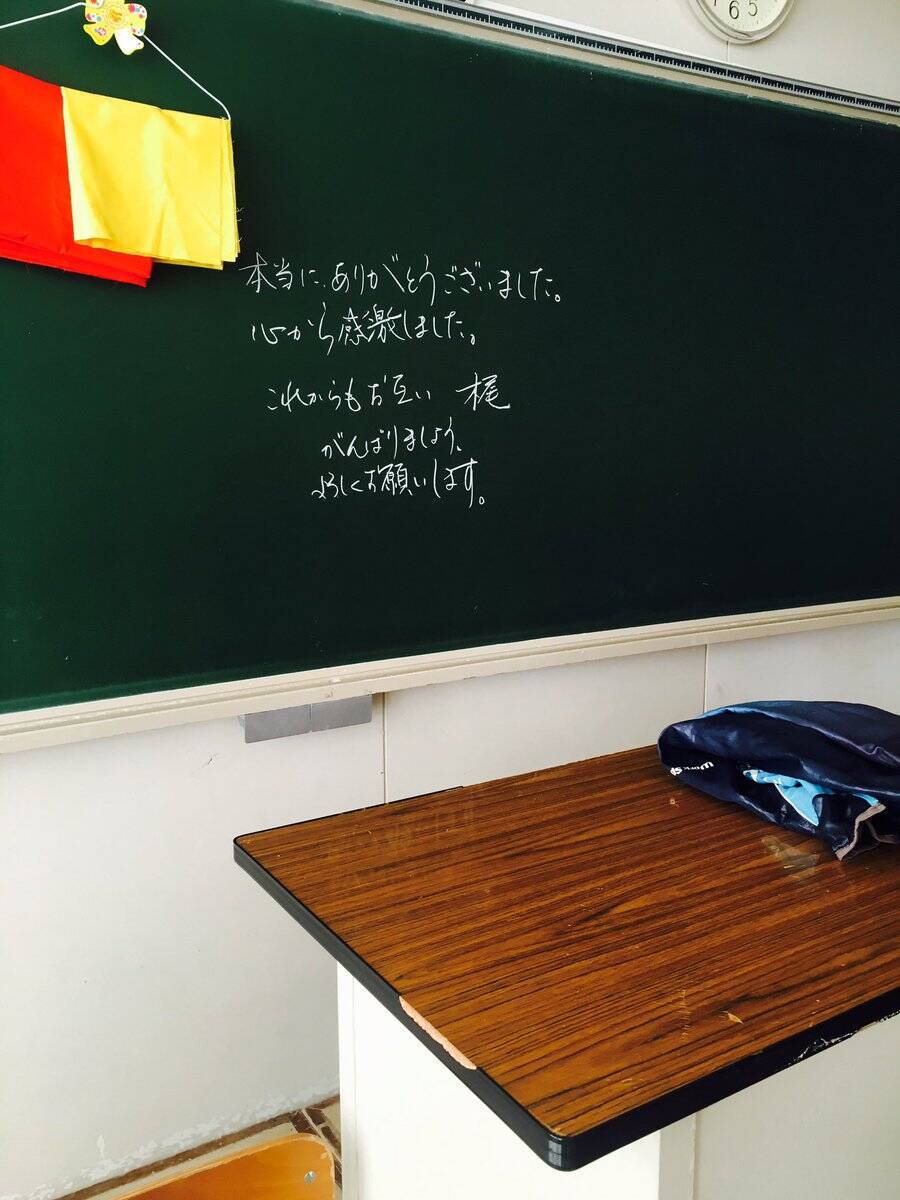 6 5
本当に、ありがとうございました。
心から感激しました。
これからもお互い 梶
がんばりましょう、
よろしくお願いします。